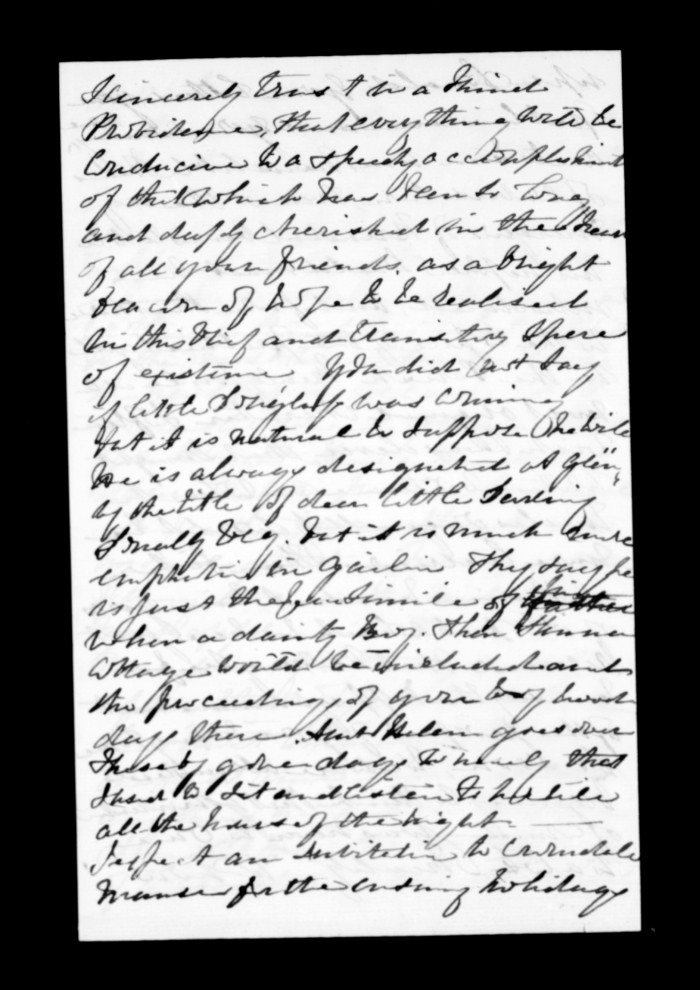 Sincerely trust in a kind
Providence, that everything will be
Conducive to a speedy accomplishment
of that which has been so long
and deeply cherished in the
of all your friends. as a bright
beacon of hope to be realised
in this brief and transitory spere
of existence You did not say
if little was coming
but it is natural to suppose he will
he is always designated at
by the title of dear little darling
boy. but it is much more
emphatic in Gaelic They say he
is just the facsimile of
when a dainty Boy. then
Cottage would be included amts
the proceedings of your boyhood
days there. Aunt Helen goes over
these by gone days so nicely that
I used to sit and listen to her till
all the hours of the night. —
I expect an invitation to
Manse for the ensuing holidays